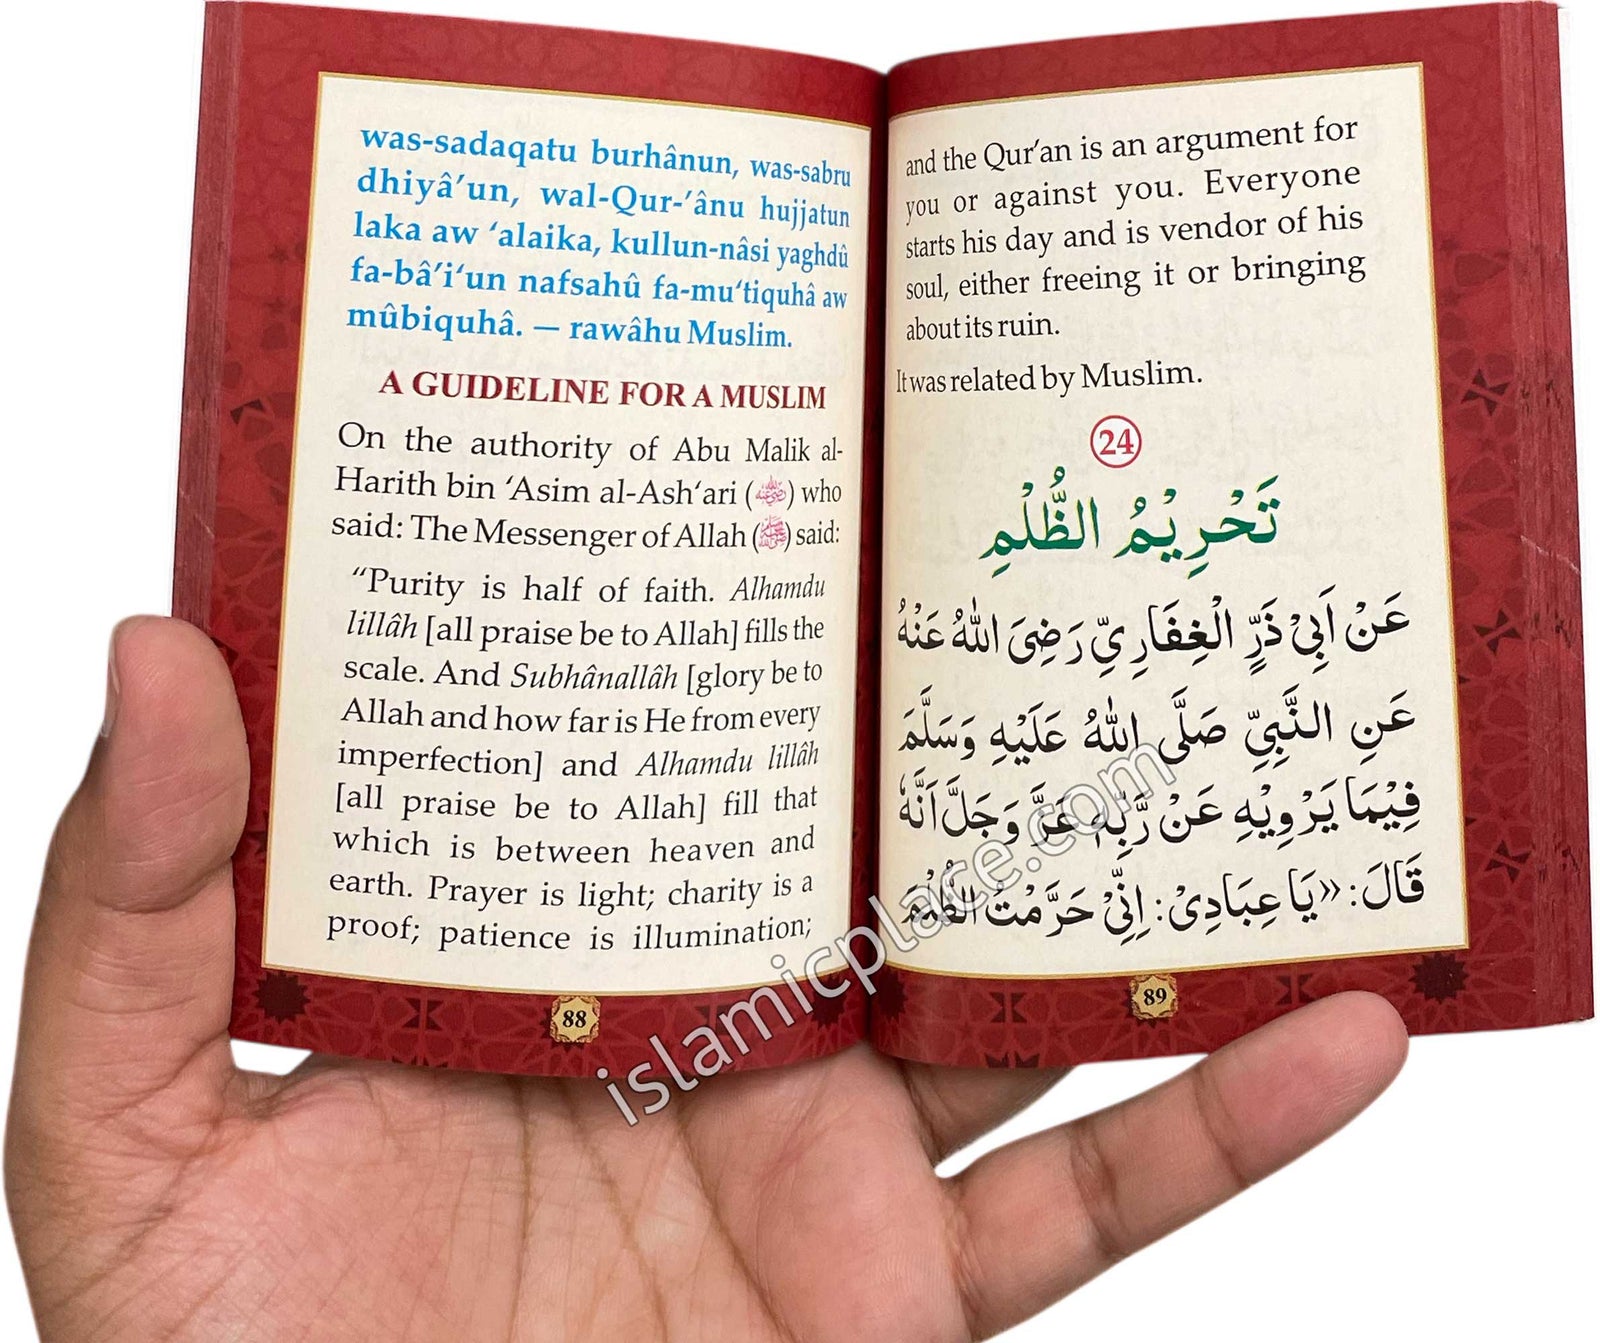 was-sadaqatu burhânun, was-sabru
dhiyâ’un, wal-Qur-’ânu hujjatun
laka aw ‘alaika, kullun-nâsi yaghdû
fa-bâ’i‘un nafsahû fa-mu‘tiquhâ aw
mûbiquhâ. — rawâhu Muslim.
A GUIDELINE FOR A MUSLIM
On the authority of Abu Malik al-
Harith bin ‘Asim al-Ash‘ari (رضي الله عنه) who
said: The Messenger of Allah (ﷺ) said:
“Purity is half of faith. Alhamdu
lillâh [all praise be to Allah] fills the
scale. And Subhânallâh [glory be to
Allah and how far is He from every
imperfection] and Alhamdu lillâh
[all praise be to Allah] fill that
which is between heaven and
earth. Prayer is light; charity is a
proof; patience is illumination;
88
and the Qur’an is an argument for
you or against you. Everyone
starts his day and is vendor of his
soul, either freeing it or bringing
about its ruin.
It was related by Muslim.
24
تَحْرِيْمُ الظُّلْمِ
عَنْ اَبِيْ ذَرٍّ الْغِفَارِيِّ رَضِىَ اللهُ عَنْهُ
عَنِ النَّبِيِّ صَلَّى اللهُ عَلَيْهِ وَسَلَّمَ
فِيْمَا يَرْوِيْهِ عَنْ رَّبِّهٖ عَزَّ وَجَلَّ اَنَّهٗ
قَالَ: «يَا عِبَادِىْ: اِنِّيْ حَرَّمْتُ الظُّلْمَ
89
islamicplace.com